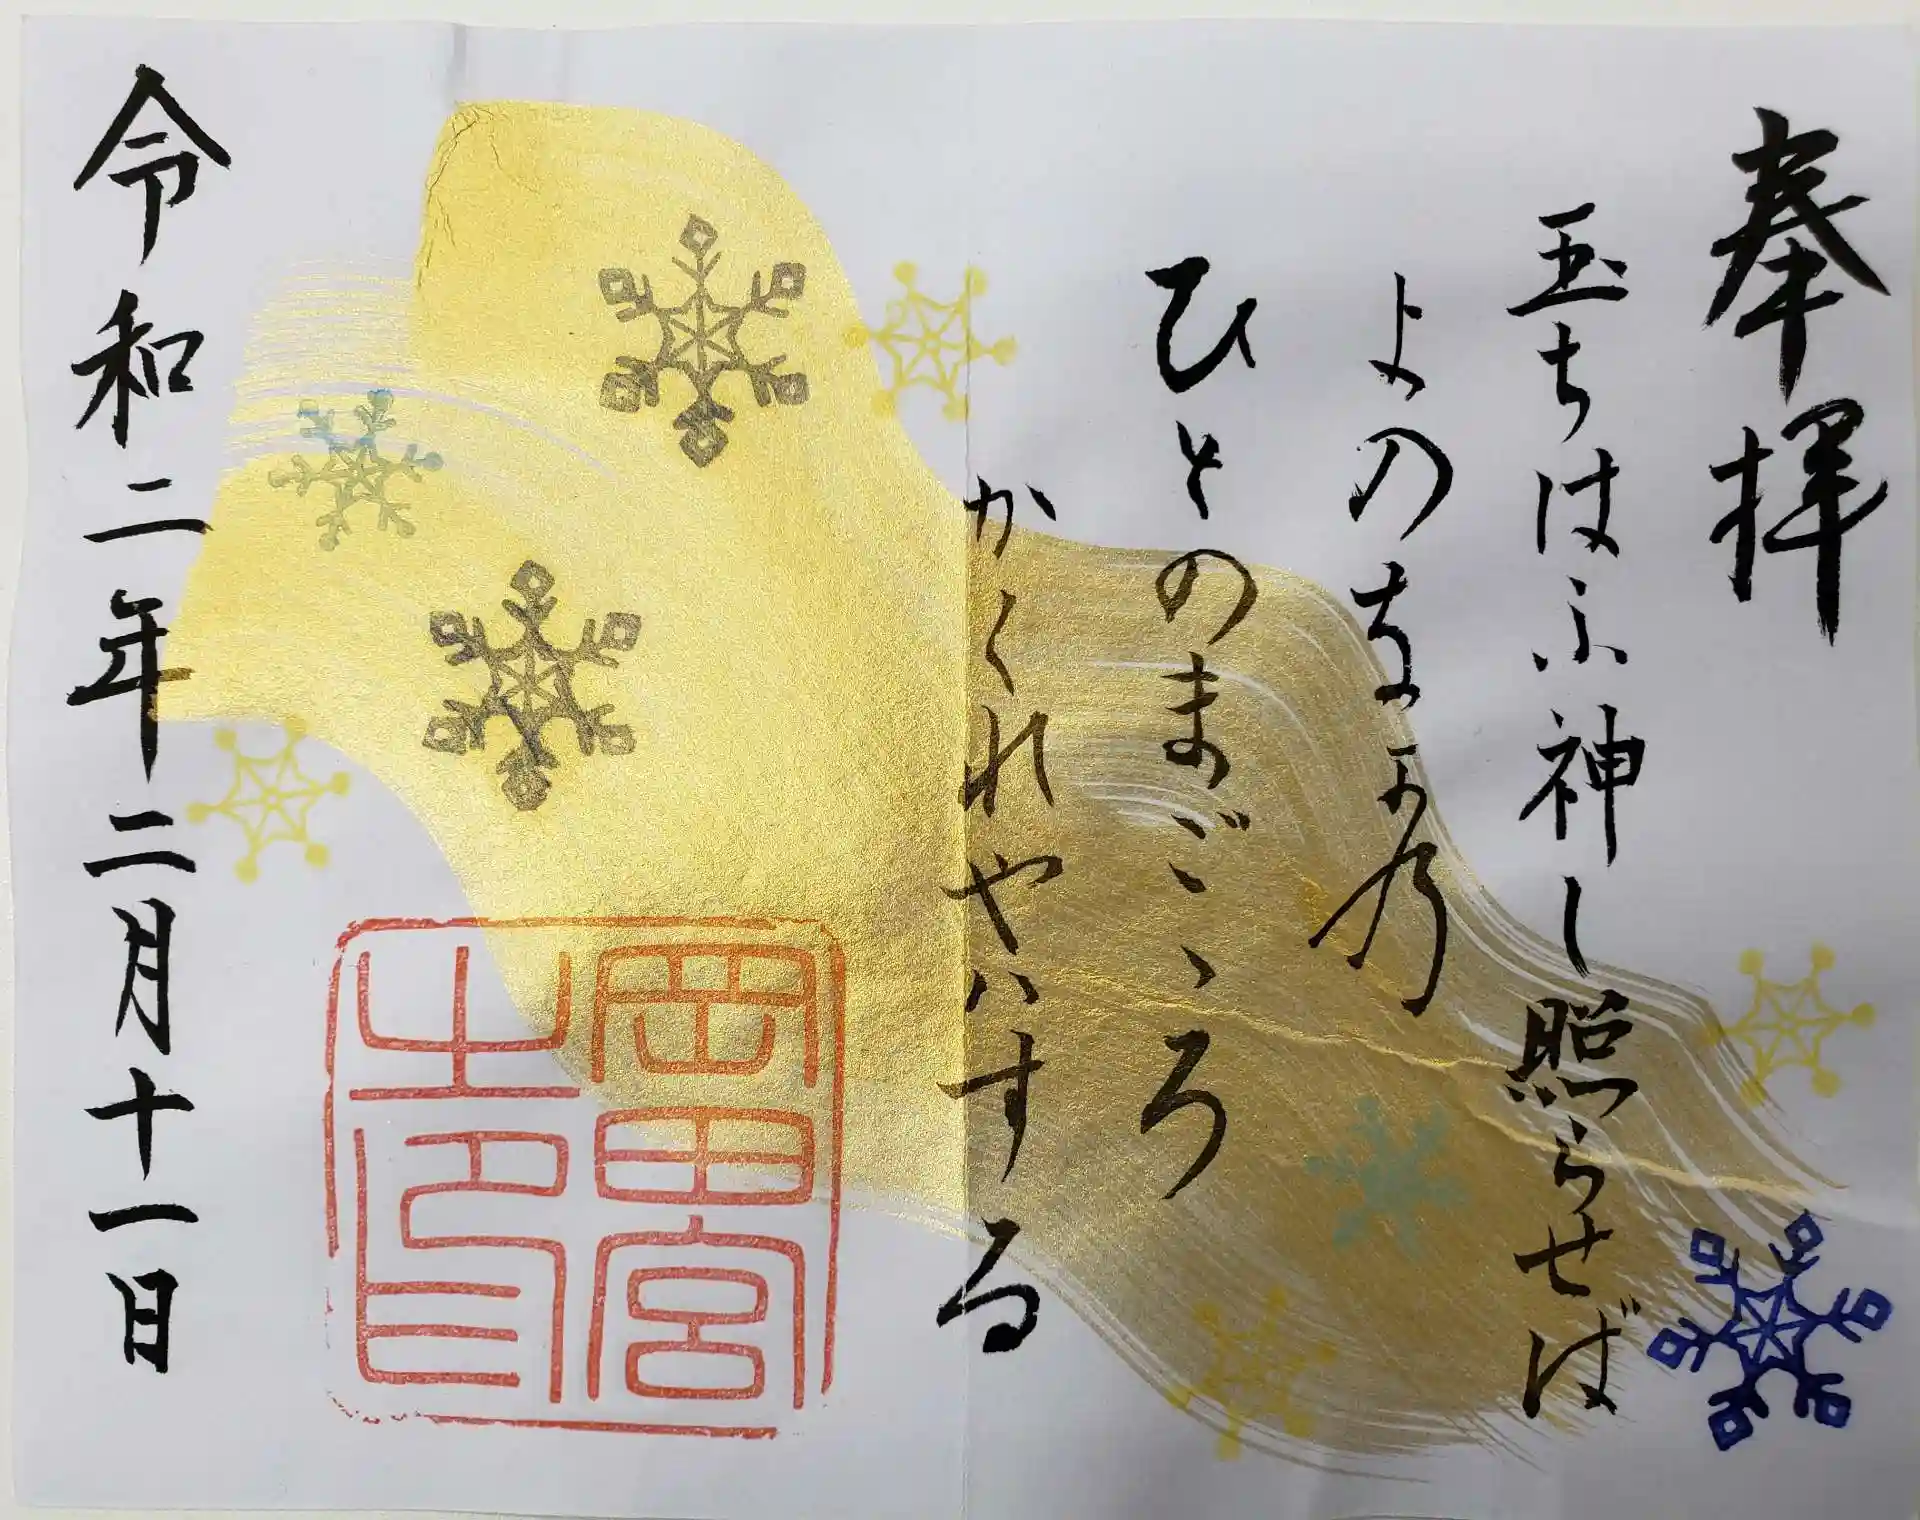 奉拝
玉ちはふ神し照らせば
よのな可乃
ひとのまごゝろ
かくれやハする
岡田宮
之印
令和二年二月十一日